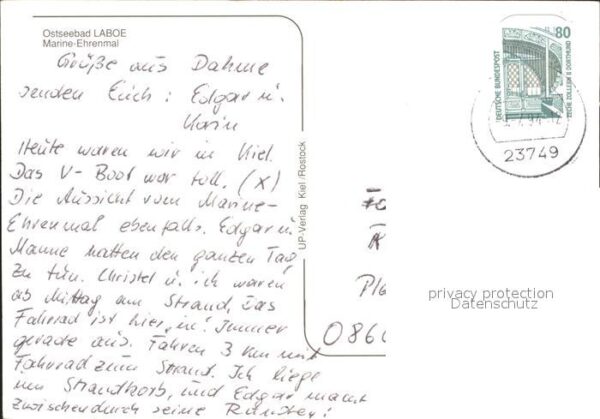 Ostseebad LABOE
Marine-Ehrenmal
Grüße aus Dahme
senden Euch : Edgar u.
Karin
Heute waren wir in Kiel.
Das U-Boot war toll. (X)
Die Aussicht vom Marine-
Ehrenmal ebenfalls. Edgar u.
Manne hatten den ganzen Tag
zu tun. Christel u. ich waren
ab Mittag am Strand. Das
Fahrrad ist hier „in“. Immer
gerade aus. Fahren 3 km mit
Fahrrad zum Strand. Ich liege
im Strandkorb, und Edgar macht
zwischendurch seine Runden!
UP-Verlag Kiel/Rostock
80
DEUTSCHE BUNDESPOST
ZECHE ZOLLERN II DORTMUND
23749
privacy protection
Datenschutz